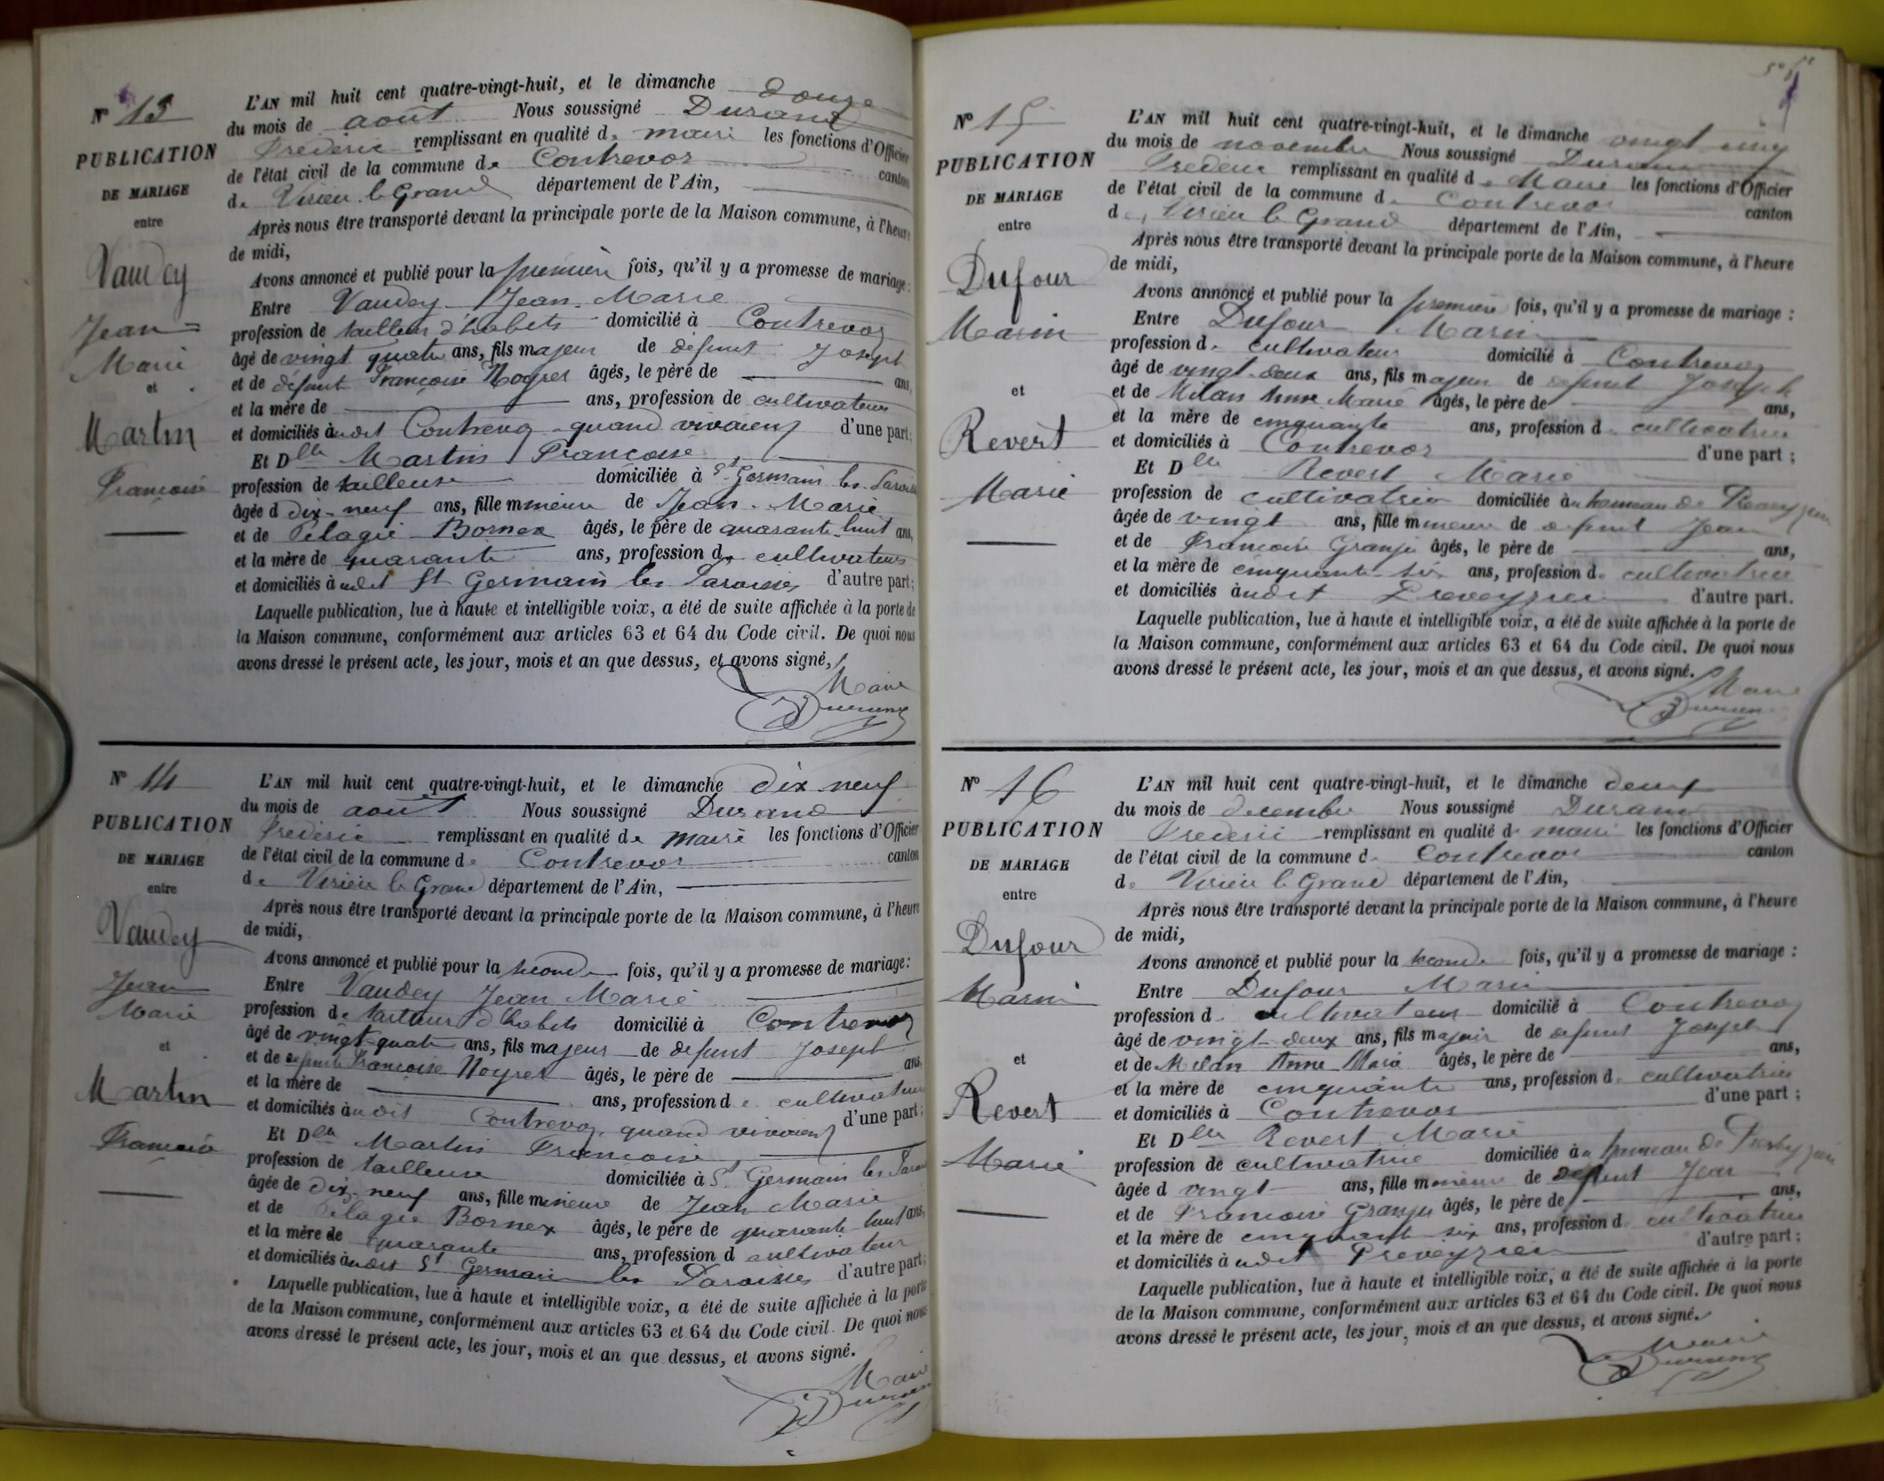 N° 13
PUBLICATION
DE MARIAGE
entre
Vaudey
Jean
Marie
et
Martin
Françoise
L'AN mil huit cent quatre-vingt-huit, et le dimanche douze
du mois de août Nous soussigné Durand
Frederic remplissant en qualité de maire les fonctions d'Officier
de l'état civil de la commune de Contrevoz canton
de Virieu le Grand département de l'Ain,
Après nous être transporté devant la principale porte de la Maison commune, à l'heure
de midi,
Avons annoncé et publié pour la première fois, qu'il y a promesse de mariage :
Entre Vaudey Jean Marie
profession de tailleur d'habits domicilié à Contrevoz
âgé de vingt quatre ans, fils majeur de defunt Joseph
et de défunte Françoise Noyrer âgés, le père de ans,
et la mère de ans, profession de cultivateurs
et domiciliés à udit Contrevoz quand vivaient d'une part ;
Et Dlle Martin Françoise
profession de tailleuse domiciliée à St Germain les Paroisses
âgée d dix-neuf ans, fille mineure de Jean-Marie
et de Pélagie Bornex âgés, le père de quarante-huit ans,
et la mère de quarante ans, profession de cultivateurs
et domiciliés à udit St Germain les Paroisses d'autre part ;
Laquelle publication, lue à haute et intelligible voix, a été de suite affichée à la porte de
la Maison commune, conformément aux articles 63 et 64 du Code civil. De quoi nous
avons dressé le présent acte, les jour, mois et an que dessus, et avons signé,
Maire
Durand
N° 14
PUBLICATION
DE MARIAGE
entre
Vaudey
Jean
Marie
et
Martin
Françoise
L'AN mil huit cent quatre-vingt-huit, et le dimanche dix neuf
du mois de août Nous soussigné Durand
Frederic remplissant en qualité de maire les fonctions d'Officier
de l'état civil de la commune de Contrevoz canton
de Virieu le Grand département de l'Ain,
Après nous être transporté devant la principale porte de la Maison commune, à l'heure
de midi,
Avons annoncé et publié pour la seconde fois, qu'il y a promesse de mariage :
Entre Vaudey Jean Marie
profession de tailleur d'habits domicilié à Contrevoz
âgé de vingt-quatre ans, fils majeur de defunt Joseph
et de defunte Françoise Noyrer âgés, le père de ans,
et la mère de ans, profession de cultivateurs
et domiciliés à udit Contrevoz quand vivaient d'une part ;
Et Dlle Martin Françoise
profession de tailleuse domiciliée à St Germain les Paroisses
âgée de dix-neuf ans, fille mineure de Jean Marie
et de Pélagie Bornex âgés, le père de quarante-huit ans,
et la mère de quarante ans, profession d cultivateurs
et domiciliés à udit St Germain les Paroisses d'autre part ;
Laquelle publication, lue à haute et intelligible voix, a été de suite affichée à la porte
de la Maison commune, conformément aux articles 63 et 64 du Code civil. De quoi nous
avons dressé le présent acte, les jour, mois et an que dessus, et avons signé.
Maire
Durand
N° 15
PUBLICATION
DE MARIAGE
entre
Dufour
Marin
et
Revert
Marie
L'AN mil huit cent quatre-vingt-huit, et le dimanche vingt cinq
du mois de novembre Nous soussigné Durand
Frederic remplissant en qualité de Maire les fonctions d'Officier
de l'état civil de la commune de Contrevoz canton
de Virieu le Grand département de l'Ain,
Après nous être transporté devant la principale porte de la Maison commune, à l'heure
de midi,
Avons annoncé et publié pour la première fois, qu'il y a promesse de mariage :
Entre Dufour Marin
profession de cultivateur domicilié à Contrevoz
âgé de vingt-deux ans, fils majeur de defunt Joseph
et de Milan Anne Marie âgés, le père de ans,
et la mère de cinquante ans, profession de cultivatrice
et domiciliés à Contrevoz d'une part ;
Et Dlle Revert Marie
profession de cultivatrice domiciliée à u hameau de Preveyzieu
âgée de vingt ans, fille mineure de defunt Jean
et de Françoise Granju âgés, le père de ans,
et la mère de cinquante-six ans, profession de cultivatrice
et domiciliés à udit Preveyzieu d'autre part.
Laquelle publication, lue à haute et intelligible voix, a été de suite affichée à la porte de
la Maison commune, conformément aux articles 63 et 64 du Code civil. De quoi nous
avons dressé le présent acte, les jour, mois et an que dessus, et avons signé.
Maire
Durand
N° 16
PUBLICATION
DE MARIAGE
entre
Dufour
Marin
et
Revert
Marie
L'AN mil huit cent quatre-vingt-huit, et le dimanche deux
du mois de decembre Nous soussigné Durand
Frederic remplissant en qualité de maire les fonctions d'Officier
de l'état civil de la commune de Contrevoz canton
de Virieu le Grand département de l'Ain,
Après nous être transporté devant la principale porte de la Maison commune, à l'heure
de midi,
Avons annoncé et publié pour la seconde fois, qu'il y a promesse de mariage :
Entre Dufour Marin
profession de cultivateur domicilié à Contrevoz
âgé de vingt-deux ans, fils majeur de defunt Joseph
et de Milan Anne Marie âgés, le père de ans,
et la mère de cinquante ans, profession de cultivatrice
et domiciliés à Contrevoz d'une part ;
Et Dlle Revert Marie
profession de cultivatrice domiciliée à u hameau de
âgée d vingt ans, fille mineure de defunt Jean
et de Françoise Granju âgés, le père de ans,
et la mère de cinquante six ans, profession de cultivatrice
et domiciliés à udit Preveyzieu d'autre part ;
Laquelle publication, lue à haute et intelligible voix, a été de suite affichée à la porte
de la Maison commune, conformément aux articles 63 et 64 du Code civil. De quoi nous
avons dressé le présent acte, les jour, mois et an que dessus, et avons signé.
Maire
Durand